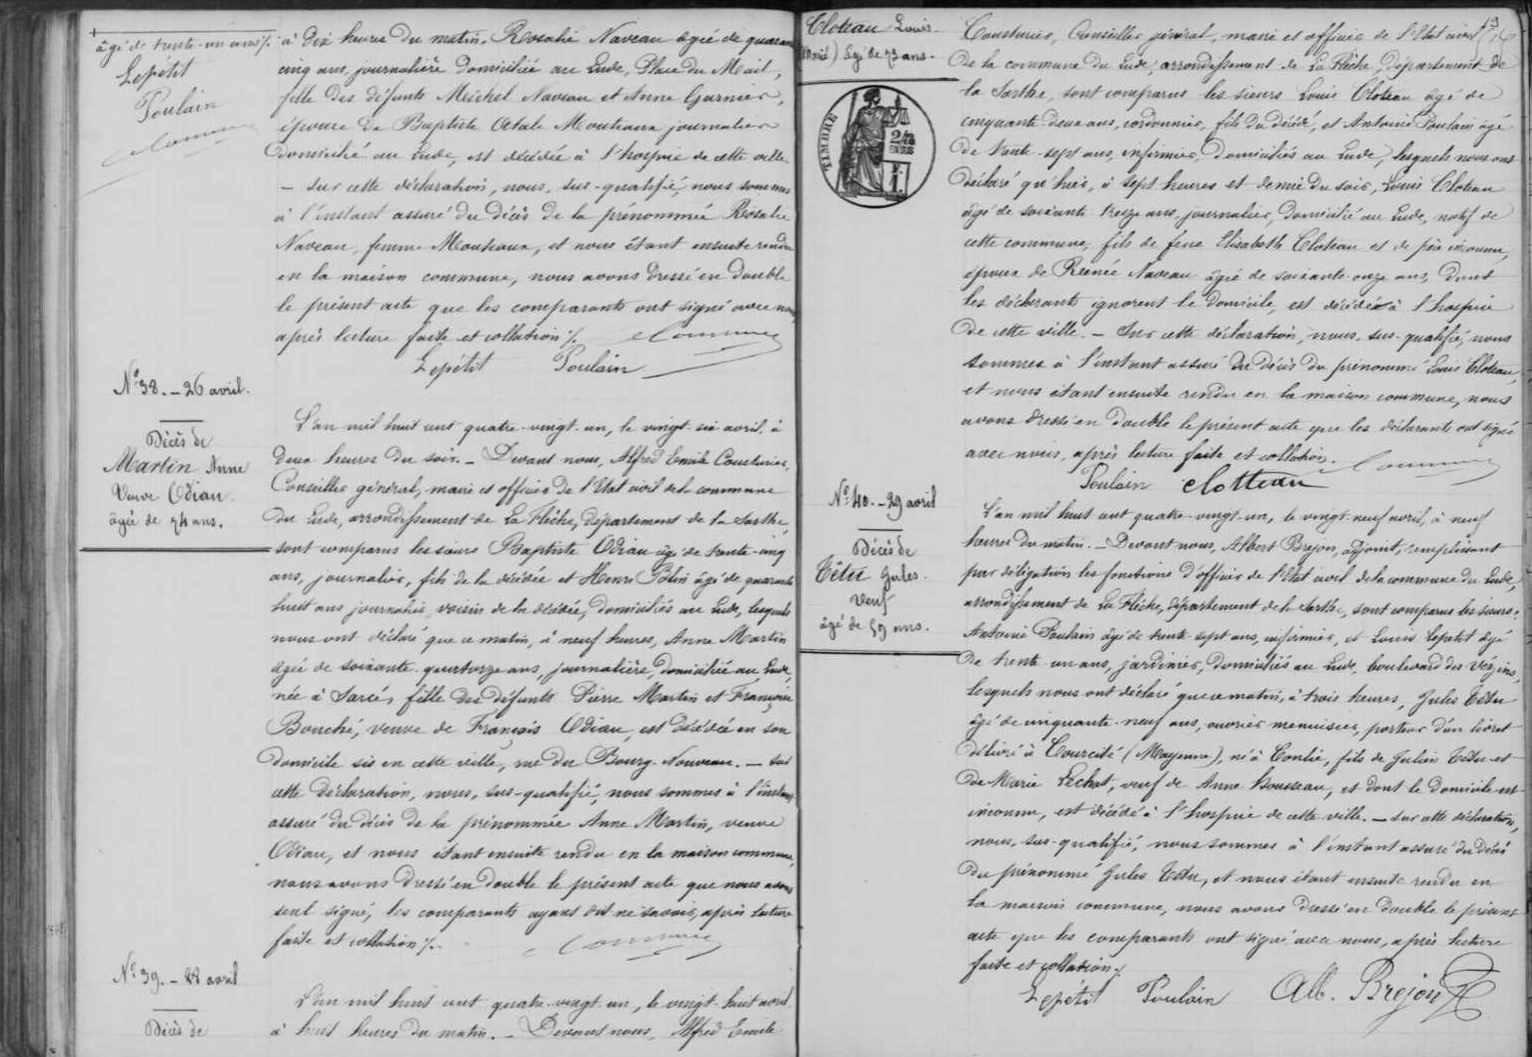 âgé de trente-un ans ./.
Lepetit
Poulain
à dix heures du matin, Rosalie Naveau âgée de quarante
cinq ans, journalière domiciliée au Lude, Place du Mail,
fille des défunts Michel Naveau et Anne Garnier,
épouse de Baptiste Octale Mouteaux journalier
domicilié au Lude, est décédée à l'hospice de cette ville.
— Sur cette déclaration, nous, sus-qualifié, nous sommes
à l'instant assuré du décès de la prénommée Rosalie
Naveau, femme Mouteaux, et nous étant ensuite rendu
en la maison commune, nous avons dressé en double
le présent acte que les comparants ont signé avec nous,
après lecture faite et collation ./.
Lepetit Poulain
N° 38. — 26 avril.
Décès de
Martin Anne
Veuve Odiau.
âgée de 74 ans.
L'an mil huit cent quatre-vingt-un, le vingt-six avril, à
deux heures du soir. — Devant nous, Alfred Emile Cousturier,
Conseiller général, maire et officier de l'Etat civil de la commune
du Lude, arrondissement de La Flèche, département de la Sarthe,
sont comparus les sieurs Baptiste Odiau âgé de trente-cinq
ans, journalier, fils de la décédée et Henri Blin âgé de quarante
huit ans journalier, voisin de la décédée, domiciliés au Lude, lesquels
nous ont déclaré que ce matin, à neuf heures, Anne Martin
âgée de soixante-quatorze ans, journalière, domiciliée au Lude,
née à Sarcé, fille des défunts Pierre Martin et Françoise
Bouché, veuve de François Odiau, est décédée en son
domicile sis en cette ville, rue du Bourg-Nouveau. — Sur
cette déclaration, nous, sus-qualifié, nous sommes à l'instant
assuré du décès de la prénommée Anne Martin, veuve
Odiau, et nous étant ensuite rendu en la maison commune,
nous avons dressé en double le présent acte que nous avons
seul signé, les comparants ayant dit ne savoir, après lecture
faite et collation ./.
N° 39. — 28 avril
Décès de
L'an mil huit cent quatre-vingt-un, le vingt-huit avril
à huit heures du matin. — Devant nous, Alfred Emile
Cloteau Louis.
(Marié) âgé de 73 ans.
TIMBRE
19
Cousturier, Conseiller général, maire et officier de l'Etat civil
de la commune du Lude, arrondissement de La Flèche, département de
la Sarthe, sont comparus les sieurs Louis Cloteau âgé de
cinquante-deux ans, cordonnier, fils du décédé, et Antoine Poulain âgé
de trente-sept ans, infirmier, domiciliés au Lude, lesquels nous ont
déclaré qu'hier, à sept heures et demie du soir, Louis Cloteau
âgé de soixante treize ans, journalier, domicilié au Lude, natif de
cette commune, fils de feue Elisabeth Cloteau et de père inconnu,
époux de Renée Naveau âgée de soixante-onze ans, dont
les déclarants ignorent le domicile, est décédé à l'hospice
de cette ville. — Sur cette déclaration, nous, sus-qualifié, nous
sommes à l'instant assuré du décès du prénommé Louis Cloteau,
et nous étant ensuite rendu en la maison commune, nous
avons dressé en double le présent acte que les déclarants ont signé
avec nous, après lecture faite et collation.
Poulain Clotteau
N° 40. — 29 avril
Décès de
Têtu Jules.
Veuf
âgé de 59 ans.
L'an mil huit cent quatre-vingt-un, le vingt-neuf avril, à neuf
heures du matin. — Devant nous, Albert Brejon, adjoint, remplissant
par délégation les fonctions d'officier de l'Etat civil de la commune du Lude,
arrondissement de La Flèche, département de la Sarthe, sont comparus les sieurs:
Antoine Poulain âgé de trente-sept ans, infirmier, et Louis Lepetit âgé
de trente-un ans, jardinier, domiciliés au Lude, boulevard des
lesquels nous ont déclaré que ce matin, à trois heures, Jules Têtu
âgé de cinquante-neuf ans, ouvrier menuisier, porteur d'un livret
délivré à Courcité (Mayenne), né à Conlie, fils de Julien Têtu et
de Marie Lechat, veuf de Anne Housseau, et dont le domicile est
inconnu, est décédé à l'hospice de cette ville. — Sur cette déclaration,
nous, sus-qualifié, nous sommes à l'instant assuré du décès
du prénommé Jules Têtu, et nous étant ensuite rendu en
la maison commune, nous avons dressé en double le présent
acte que les comparants ont signé avec nous, après lecture
faite et collation ./.
Lepetit Poulain Alb. Brejon